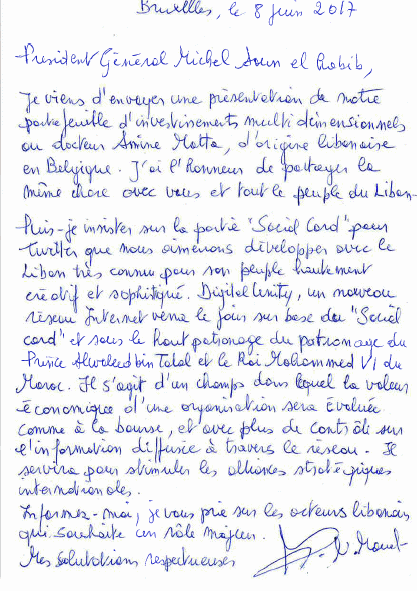 Bruxelles, le 8 juin 2017
President Général Michel Aoun el Habib,
Je viens d'envoyer une présentation de notre
portefeuille d'investissements multi dimensionnels
au docteur Amine Matta, d'origine libanaise
en Belgique. J'ai l'honneur de partager la
même chose avec vous et tout le peuple du Liban.
Puis-je insister sur la partie "Social Card" pour
Twitter que nous aimerions développer avec le
Liban très connu pour son peuple hautement
créatif et sophistiqué. Digital Unity, un nouveau
réseau Internet verra le jour sur base du "Social
card" et sous le haut patronage du patronage du
Prince Alwaleed bin Talal et le Roi Mohammed VI du
Maroc. Il s'agit d'un champs dans lequel la valeur
économique d'une organisation sera évaluée
comme à la bourse, et avec plus de contrôle sur
l'information diffusée à travers le réseau. Il
servira pour stimuler les alliances stratégiques
internationales.
Informez-moi, je vous prie sur les acteurs libanais
qui souhaite un rôle majeur.
Mes salutations respectueuses